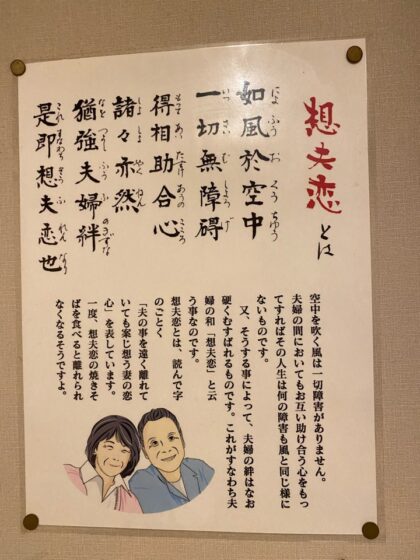 想夫恋とは
如風於空中
にょ ふう お くう ちゅう
一切無障碍
いっ さい む しょう げ
得相助合心
もって あい たすけ あうの こころ
諸々亦然
しょ しょ やく ねん
猶強夫婦絆
つよし ふう ふ のきずな
是即想夫恋也
これ すなわち そう ふ れん なり
空中を吹く風は一切障害がありません。
夫婦の間においてもお互い助け合う心をもっ
てすればその人生は何の障害も風と同じ様に
ないものです。
又、そうする事によって、夫婦の絆はなお
硬くむすばれるものです。これがすなわち夫
婦の和「想夫恋」と云
う事なのです。
想夫恋とは、読んで字
のごとく
「夫の事を遠く離れて
いても案じ想う妻の恋
心」を表しています。
一度、想夫恋の焼きそ
ばを食べると離れられ
なくなるそうですよ。